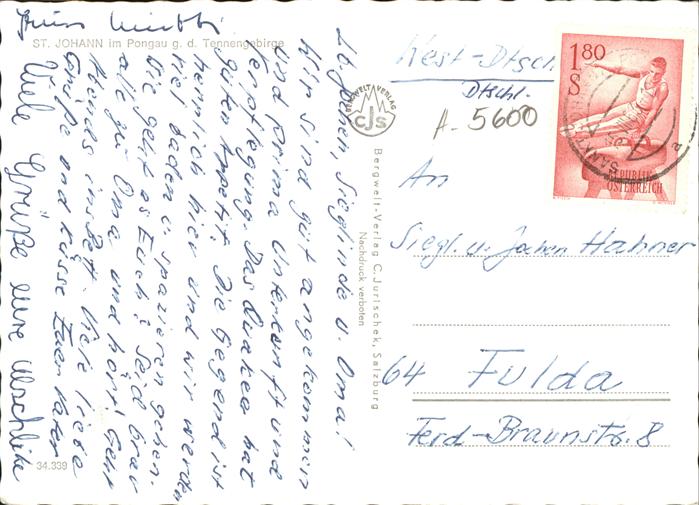 ST. JOHANN im Pongau g. d. Tennengebirge
Lb. Jochen, Sieglinde u. Oma!
Wir sind gut angekommen
und prima Unterkunft und
Verpflegung. Das hat
guten Appetit. Die Gegend ist
herrlich hier und wir werden
viel baden u. spazieren gehen.
Wie geht es Euch? Seid brav
alle zu Oma und hört! Geht
Abends ins Bett. Viele liebe
Grüße und Küsse Euer Vater
Viele Grüße eure
34.339
BERGWELT-VERLAG
CJS
Bergwelt-Verlag C. Jurischek, Salzburg
Nachdruck verboten
West-Dtschl.
Dtschl.
A-5600
1.80
S
REPUBLIK
ÖSTERREICH
SANKT
An
Siegl. u. Jochen Hahner
64 Fulda
Ferd-Braunstr. 8